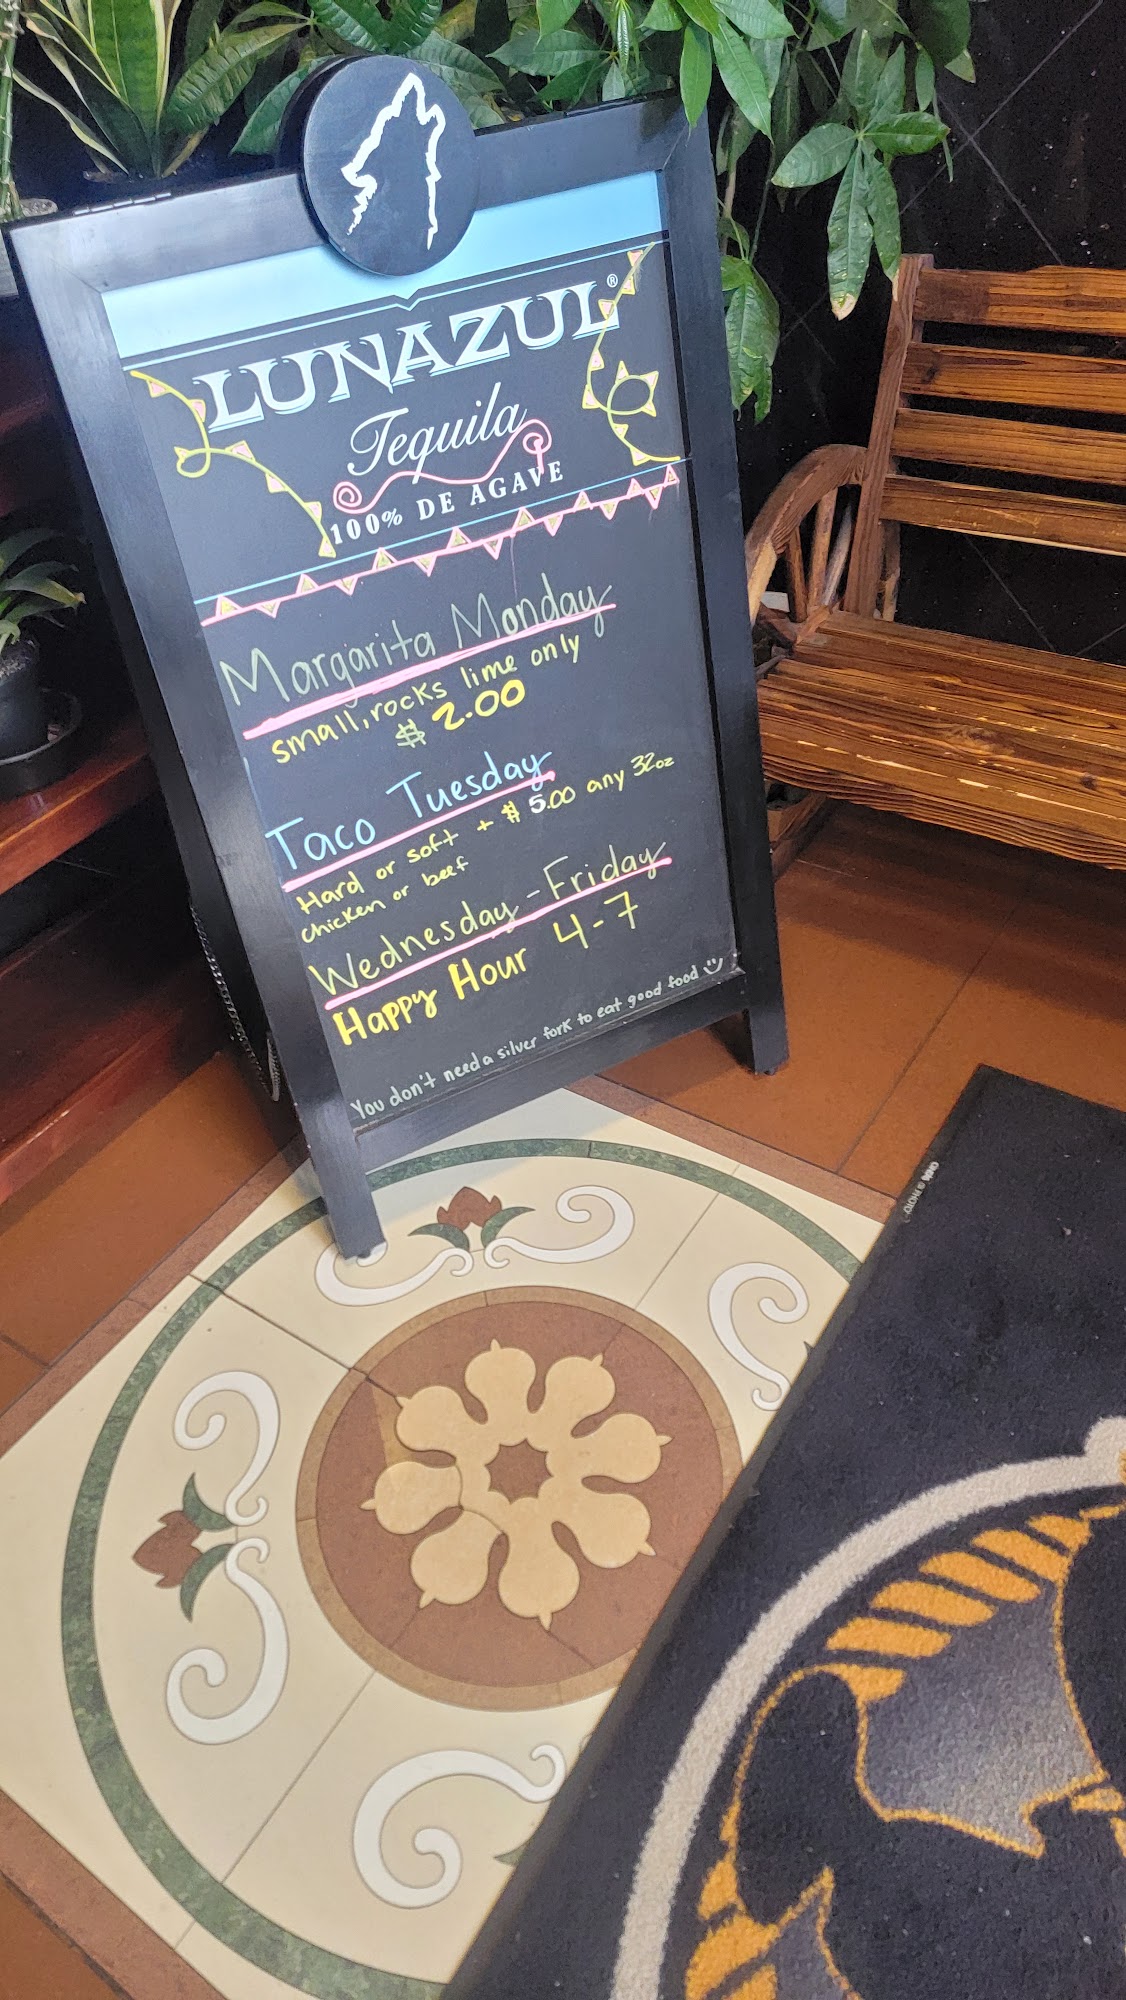 LUNAZUL®
Tequila
100% DE AGAVE
Margarita Monday
small, rocks lime only
$ 2.00
Taco Tuesday
Hard or soft + $ 5.00 any 32oz
chicken or beef
Wednesday - Friday
Happy Hour 4-7
You don't need a silver fork to eat good food